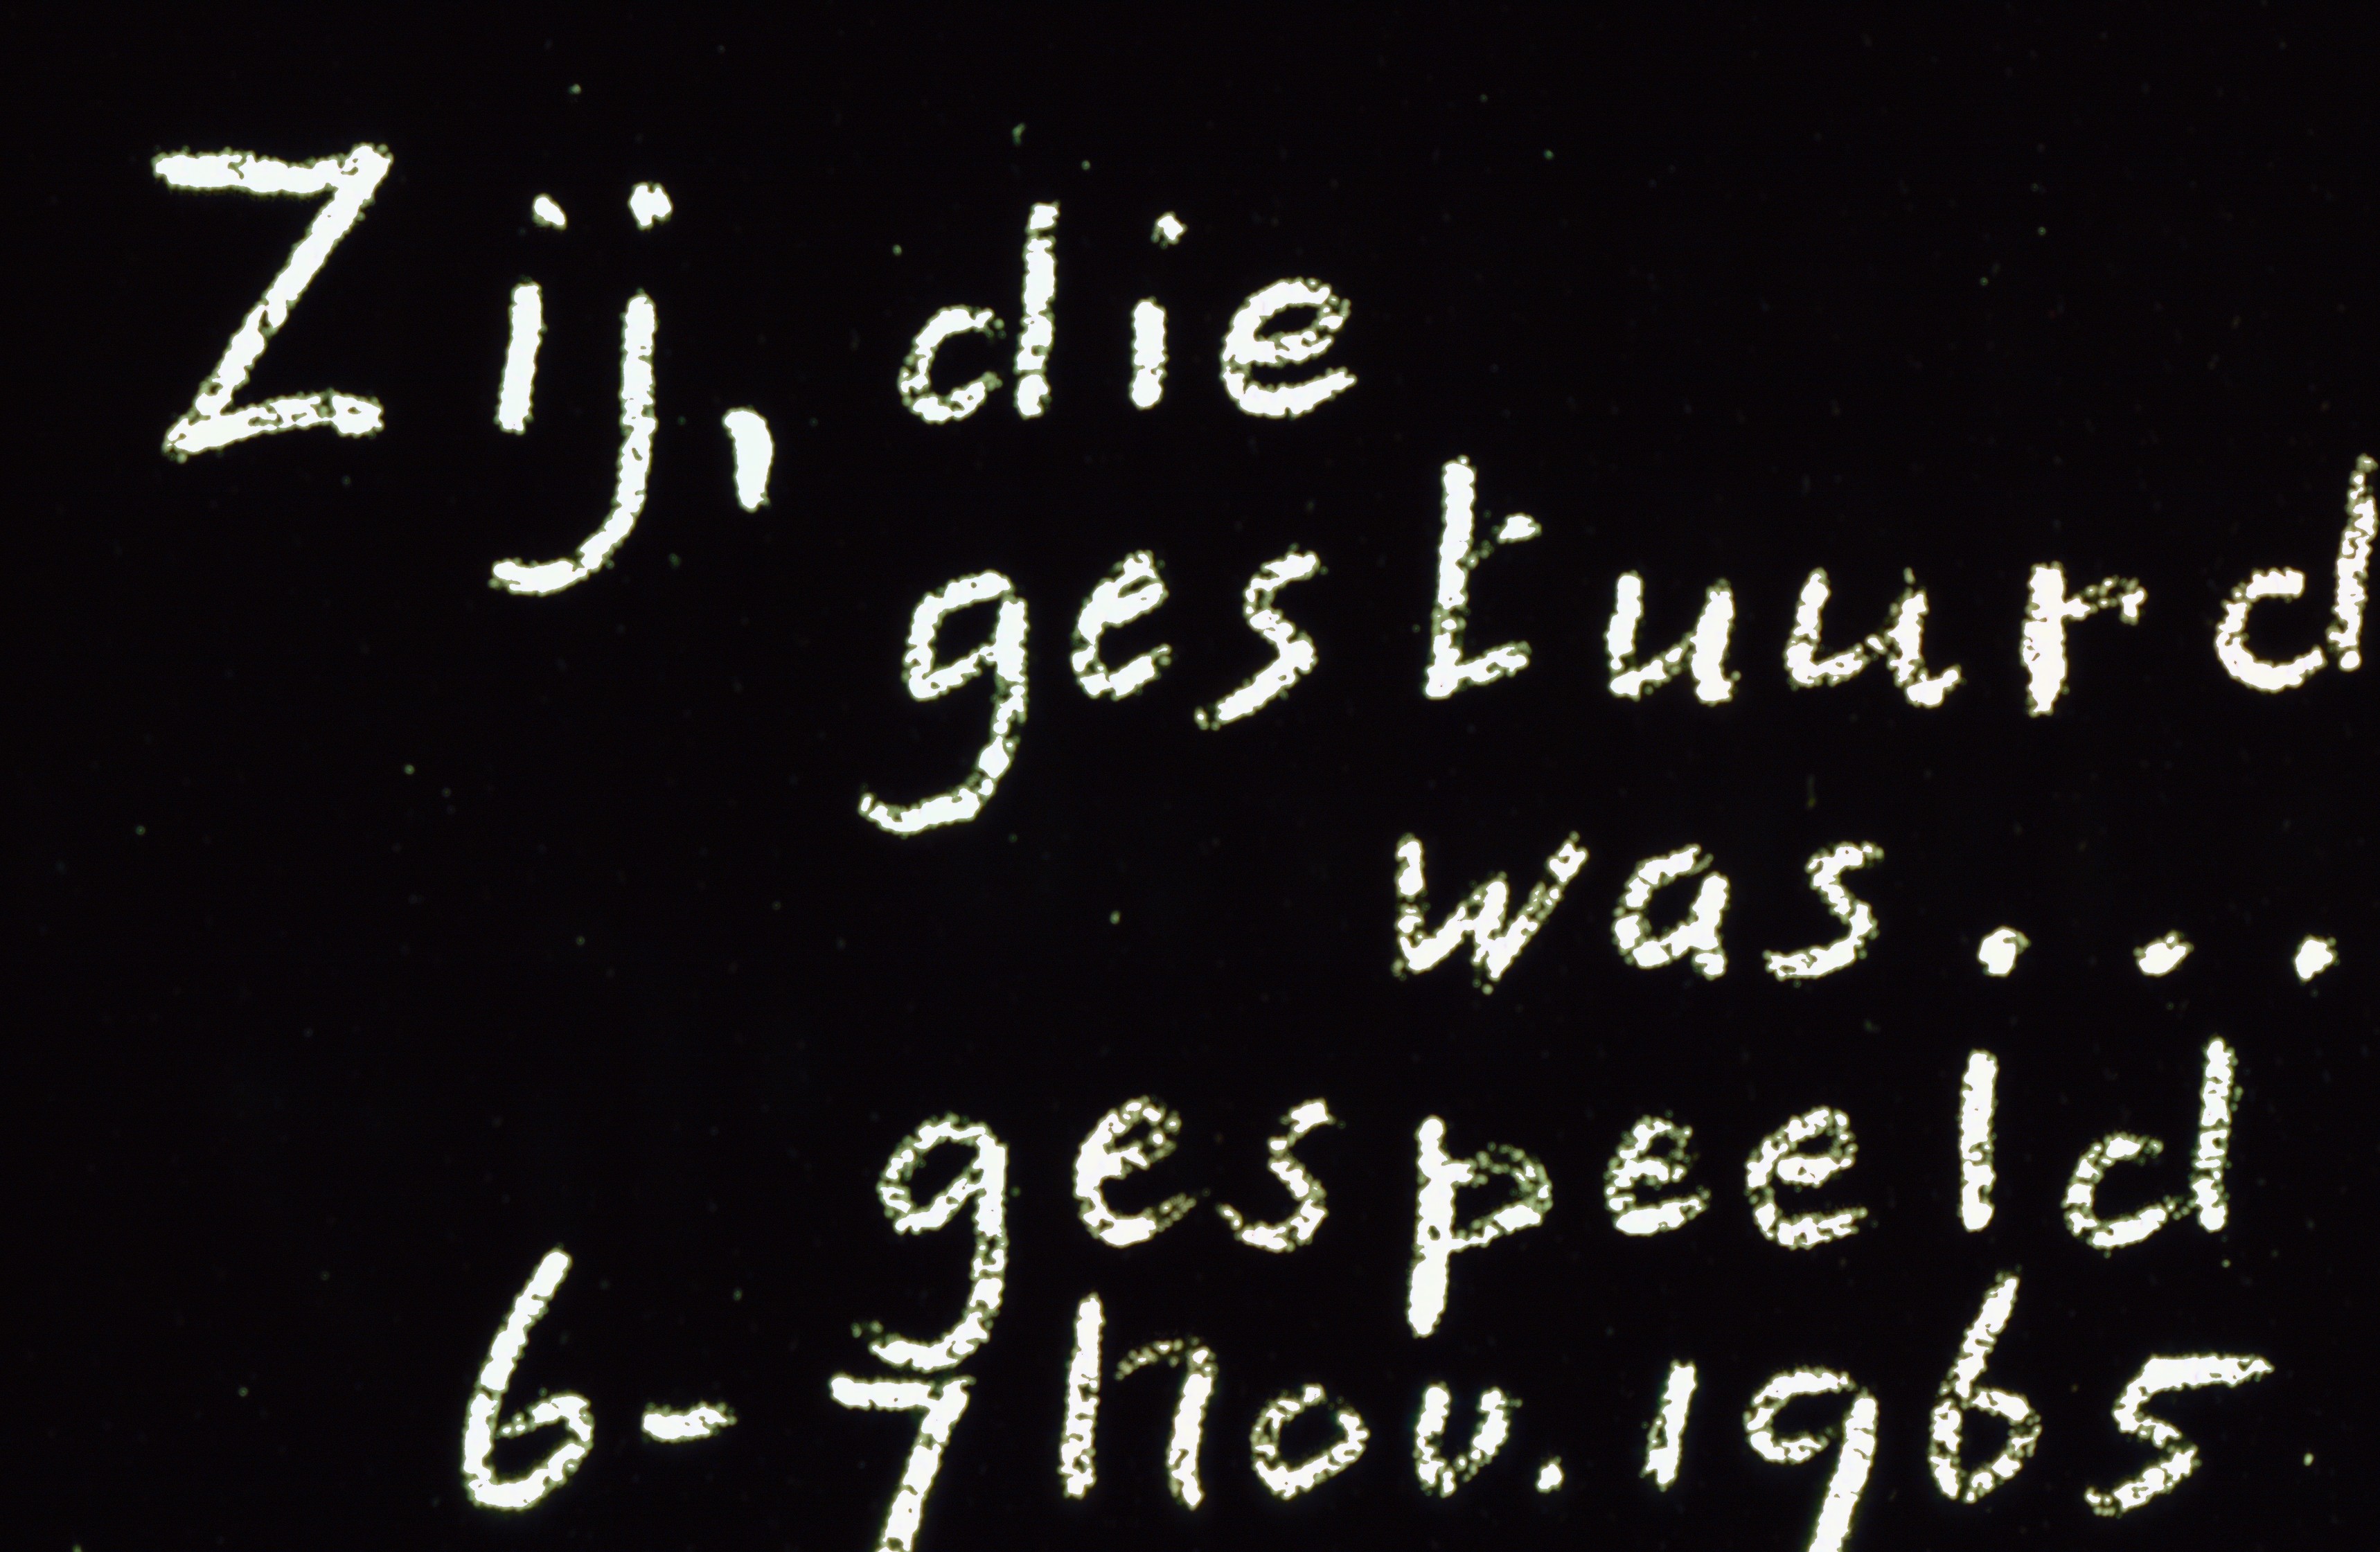 Zij, die
gestuurd
was...
gespeeld
6-7 nov. 1965